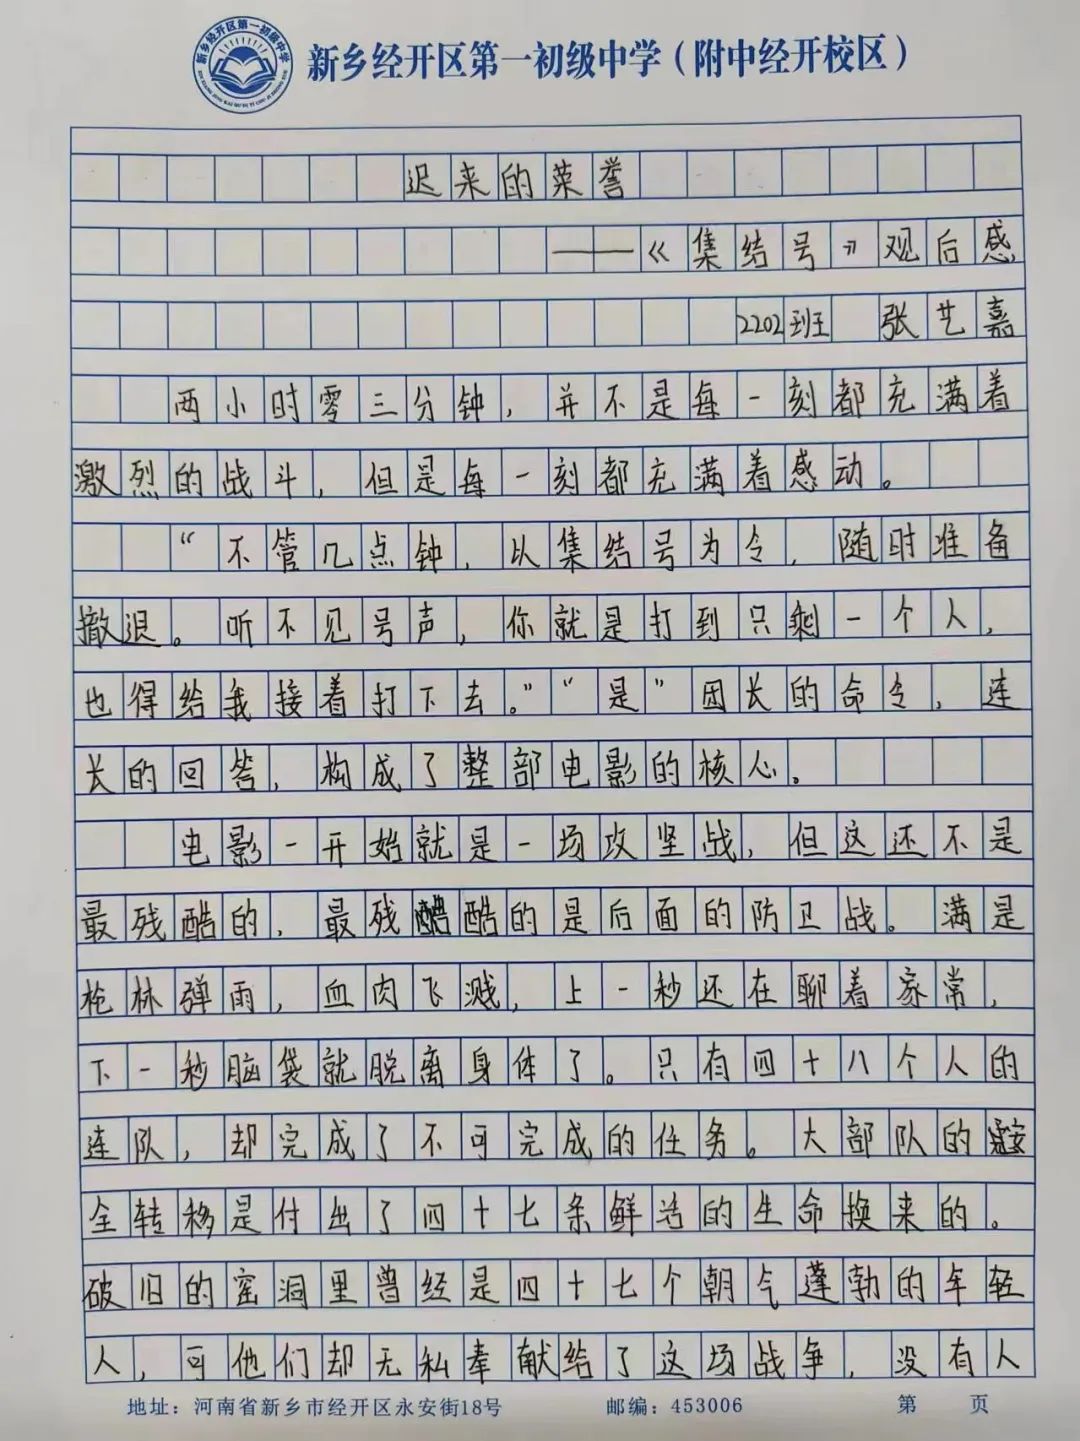 新乡经开区第一初级中学
新乡经开区第一初级中学（附中经开校区）
迟来的荣誉
——《集结号》观后感
2202班 张艺嘉
两小时零三分钟，并不是每一刻都充满着
激烈的战斗，但是每一刻都充满着感动。
“不管几点钟，以集结号为令，随时准备
撤退。听不见号声，你就是打到只剩一个人，
也得给我接着打下去。”“是”团长的命令，连
长的回答，构成了整部电影的核心。
电影一开始就是一场攻坚战，但这还不是
最残酷的，最残酷的是后面的防卫战。满是
枪林弹雨，血肉飞溅，上一秒还在聊着家常，
下一秒脑袋就脱离身体了。只有四十八个人的
连队，却完成了不可完成的任务。大部队的安
全转移是付出了四十七条鲜活的生命换来的。
破旧的窑洞里曾经是四十七个朝气蓬勃的年轻
人，可他们却无私奉献给了这场战争，没有人
地址：河南省新乡市经开区永安街18号 邮编：453006 第 页